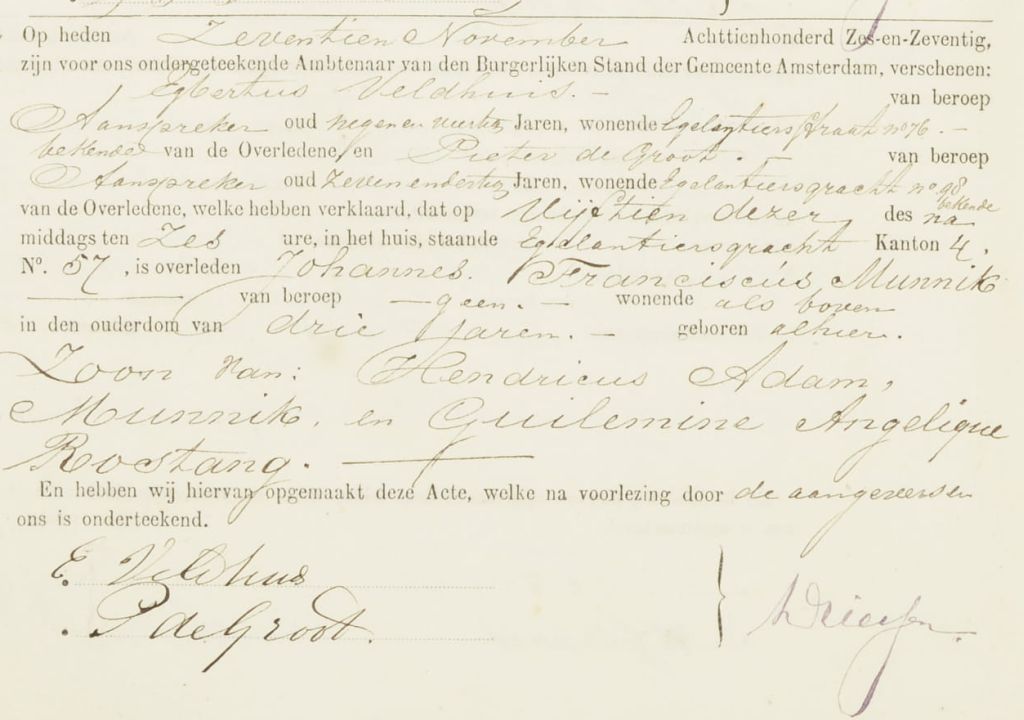 Op heden Zeventien November Achttienhonderd Zes-en-Zeventig,
zijn voor ons ondergeteekende Ambtenaar van den Burgerlijken Stand der Gemeente Amsterdam, verschenen:
Egbertus Veldhuis. – van beroep
Aanspreker oud negen en veertig Jaren, wonende Egelantiersstraat no 76. –
bekende van de Overledene, en Pieter de Groot. – van beroep
Aanspreker oud Zevenendertig Jaren, wonende Egelantiersgracht no 98 bekende
van de Overledene, welke hebben verklaard, dat op Vijftien dezer des na
middags ten Zes ure, in het huis, staande Egelantiersgracht Kanton 4.
No. 57, is overleden Johannes. Franciscus Munnik
van beroep – geen. – wonende als boven
in den ouderdom van drie jaren. – geboren alhier.
Zoon van: Hendricus Adam,
Munnik, en Guilemine Angelique
Rostang.
En hebben wij hiervan opgemaakt deze Acte, welke na voorlezing door de aangevers en
ons is onderteekend.
E. Veldhuis
P de Groot.